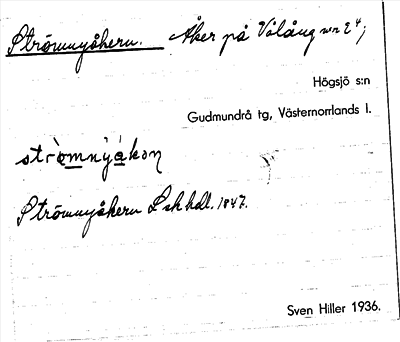 Strömnyåkern. Åker på Vålång nr 2⁴;
Högsjö s:n
Gudmundrå tg, Västernorrlands l.
strò̀mnỳákon
Strömnyåkern Lskhdl. 1847.
Sven Hiller 1936.